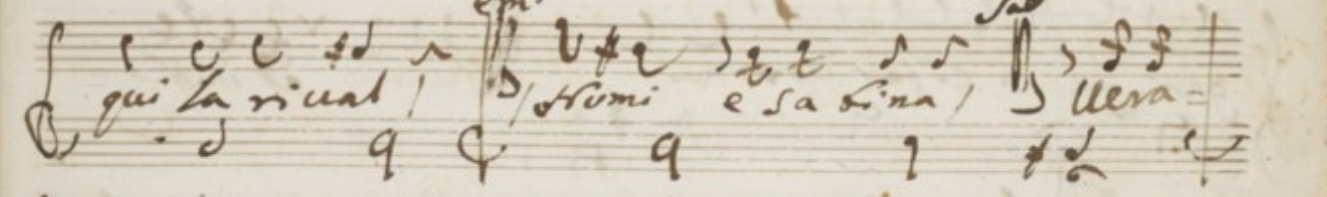 qui la rival /
/ Numi e Sabina / Vera=